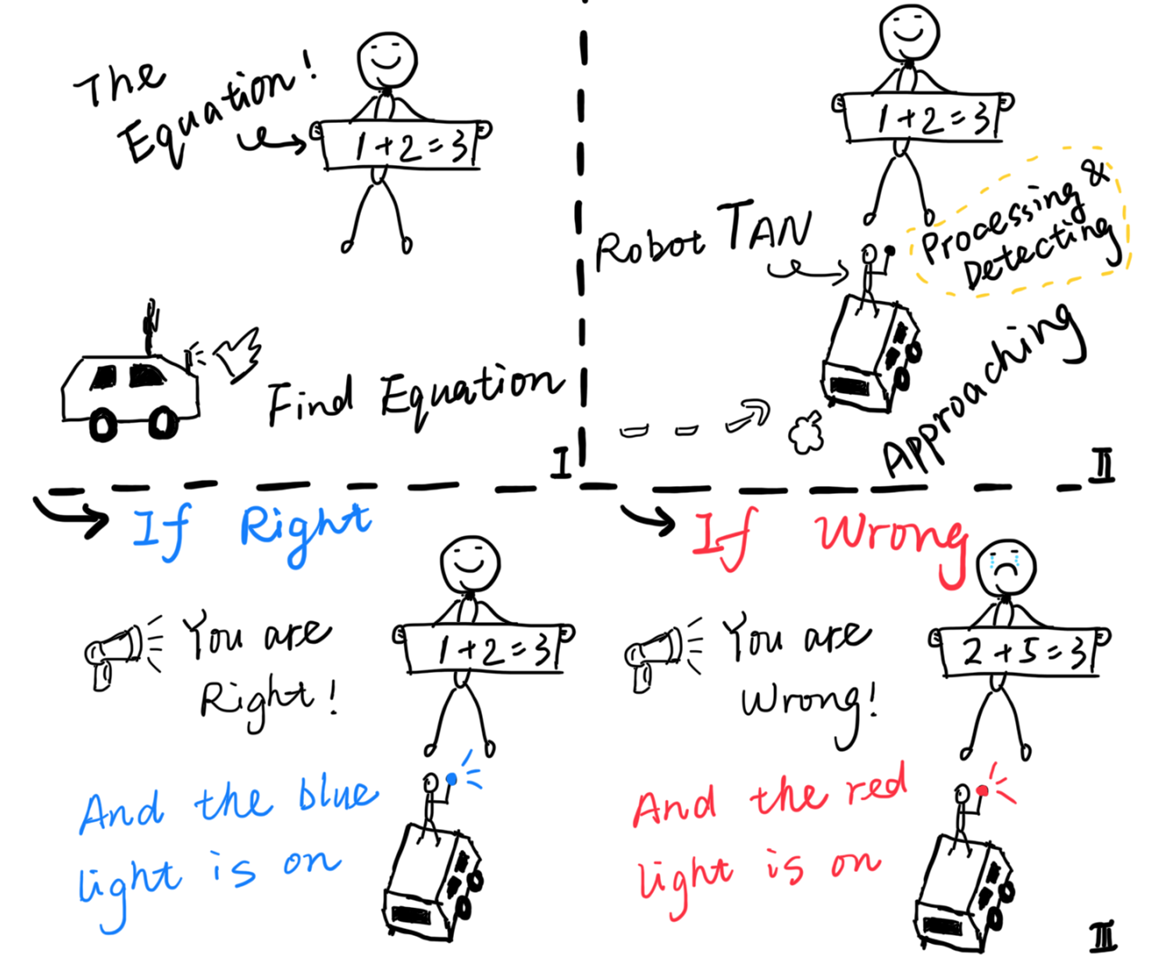 The
Equation!
1+2=3
Find Equation
I
1+2=3
Robot TAN
Processing &
Detecting
Approaching
II
If Right
1+2=3
You are
Right!
And the blue
light is on
If Wrong
2+5=3
You are
Wrong!
And the red
light is on
III